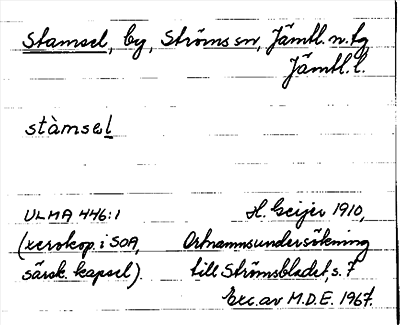 Stamsel, by, Ströms sn, Jämtl. n. tg
Jämtl. l.
stàmsel
ULMA 446:1 H. Geijer 1910,
(xerokop. i SOA, Ortnamnsundersökning
särsk. kapsel). till Strömsbladet, s. 7
Exc. av M.D.E. 1967.